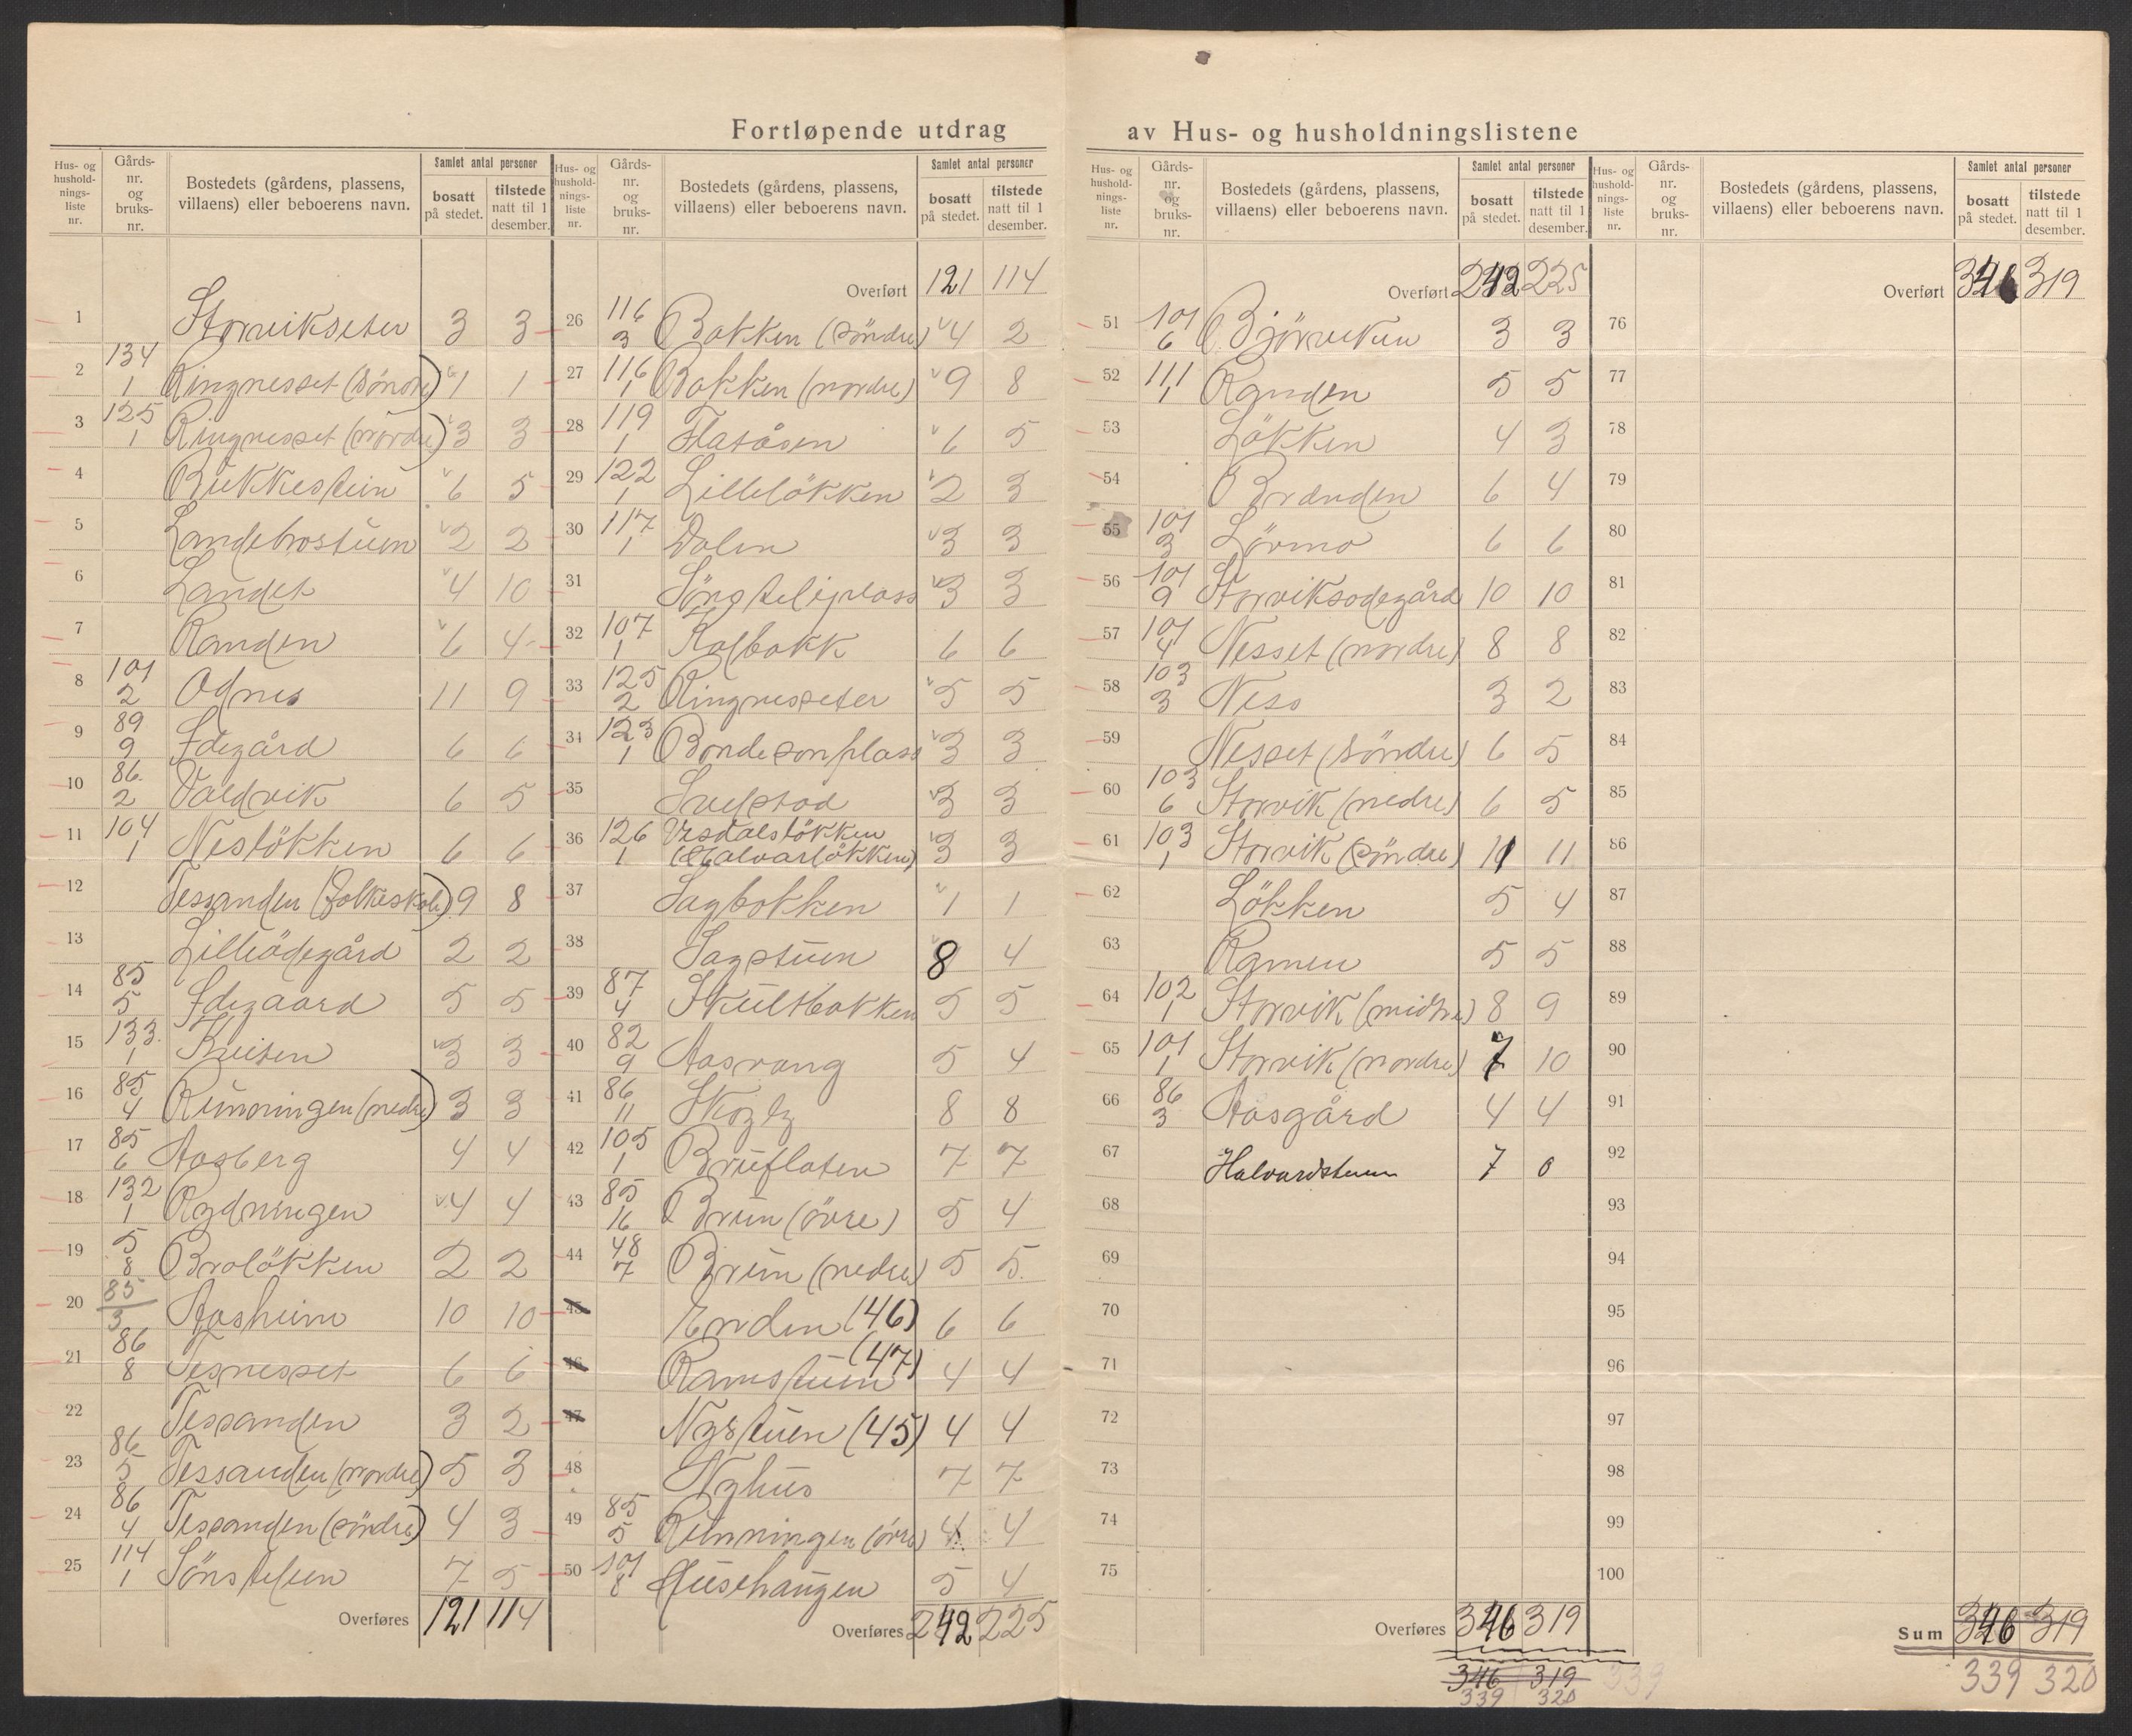 Fortløpende utdrag av Hus- og husholdningslistene
Hus- og hushold-nings-liste nr. Gårds-nr. og bruks-nr. Bostedets (gårdens, plassens, villaens) eller beboerens navn. Samlet antal personer bosatt på stedet. tilstede natt til 1 desember.
1 Storvikseter 3 3
2 134 1 Ringnesset (söndre) 1 1
3 125 1 Ringnesset (nordre) 3 3
4 Bukkestein 6 5
5 Landebrostuen 2 2
6 Landet 4 10
7 Randen 6 4
8 101 2 Odnes 11 9
9 89 9 Idegård 6 6
10 86 2 Valdvik 6 5
11 104 1 Neslökken 6 6
12 Tessanden (folkeskole) 9 8
13 Lilleödegård 2 2
14 85 5 Idegaard 5 5
15 133 1 Kveiten 3 3
16 85 4 Rünningen (nedre) 3 3
17 85 6 Aasberg 4 4
18 132 1 Rydningen 4 4
19 5 8 Brolökken 2 2
20 85 3 Aasheim 10 10
21 86 8 Tesnesset 6 6
22 Tessanden 3 2
23 86 5 Tessanden (nordre) 5 3
24 86 4 Tessanden (söndre) 4 3
25 114 1 Sönsteluen 7 5
Overføres 121 114
Hus- og hushold-nings-liste nr. Gårds-nr. og bruks-nr. Bostedets (gårdens, plassens, villaens) eller beboerens navn. Samlet antal personer bosatt på stedet. tilstede natt til 1 desember.
Overført 121 114
26 116 3 Bakken (söndre) 4 2
27 116 1 Bakken (nordre) 9 8
28 119 1 Flatåsen 6 5
29 122 1 Lillelökken 2 3
30 117 1 Dalen 3 3
31 Sönsteliplass 3 3
32 107 1 Kalbakk 6 6
33 125 2 Ringnesseter 5 5
34 123 1 Bondesonplass 3 3
35 Svelstad 3 3
36 126 1 Vesdalsløkken
(Halvarløkken) 3 3
37 Sagbakken 1 1
38 Sagstuen 8 4
39 87 4 Skultbakken 5 5
40 82 9 Aasvang 5 4
41 86 11 Skogly 8 8
42 105 1 Bruflaten 7 7
43 85 16 Brun (övre) 5 4
44 48 7 Brun (nedre) 5 5
45 Enden (46) 6 6
46 Ramstuen (47) 4 4
47 Nystuen (45) 4 4
48 Nyhus 7 7
49 85 5 Rünningen (övre) 4 4
50 101 8 Huusehaugen 5 4
Overføres 242 225
Hus- og hushold-nings-liste nr. Gårds-nr. og bruks-nr. Bostedets (gårdens, plassens, villaens) eller beboerens navn. Samlet antal personer bosatt på stedet. tilstede natt til 1 desember.
Overført 242 225
51 101 6 Björviken 3 3
52 111 1 Randen 5 5
53 Lökken 4 3
54 Brænden 6 4
55 101 3 Lörmo 6 6
56 101 9 Storviksødegård 10 10
57 101 4 Nesset (nordre) 8 8
58 103 3 Ness 3 2
59 Nesset (söndre) 6 5
60 103 6 Storvik (nedre) 6 5
61 103 1 Storvik (söndre) 11 11
62 Lökken 5 4
63 Ramen 5 5
64 102 1 Storvik (midtre) 8 9
65 101 1 Storvik (nordre) 7 10
66 86 3 Aasgård 4 4
67 Halvardstuen 7 0
68
69
70
71
72
73
74
75
Overføres 346 319
346 319
339 320
339
Hus- og hushold-nings-liste nr. Gårds-nr. og bruks-nr. Bostedets (gårdens, plassens, villaens) eller beboerens navn. Samlet antal personer bosatt på stedet. tilstede natt til 1 desember.
Overført 346 319
76
77
78
79
80
81
82
83
84
85
86
87
88
89
90
91
92
93
94
95
96
97
98
99
100
Sum 346 319
339 320